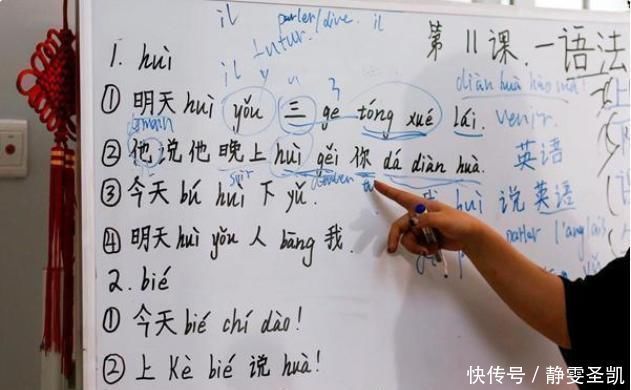 il parler/dire. il
futur.
第11课.一语法
1. huì
il y
diàn huà hào mǎ!
① 明天huì yǒu 三 ge tóng xué lái. venir.
demain
② 他说他晚上huì gěi 你 dá diàn huà. 英语
soir
③ 今天bú huì 下 yǔ. huì 说 英语
parler l'anglais
④ 明天huì yǒu 人 bāng 我.
2. bié
① 今天bié chí dào!
② 上 Kè bié 说 huà!
快传号/静雯圣凯